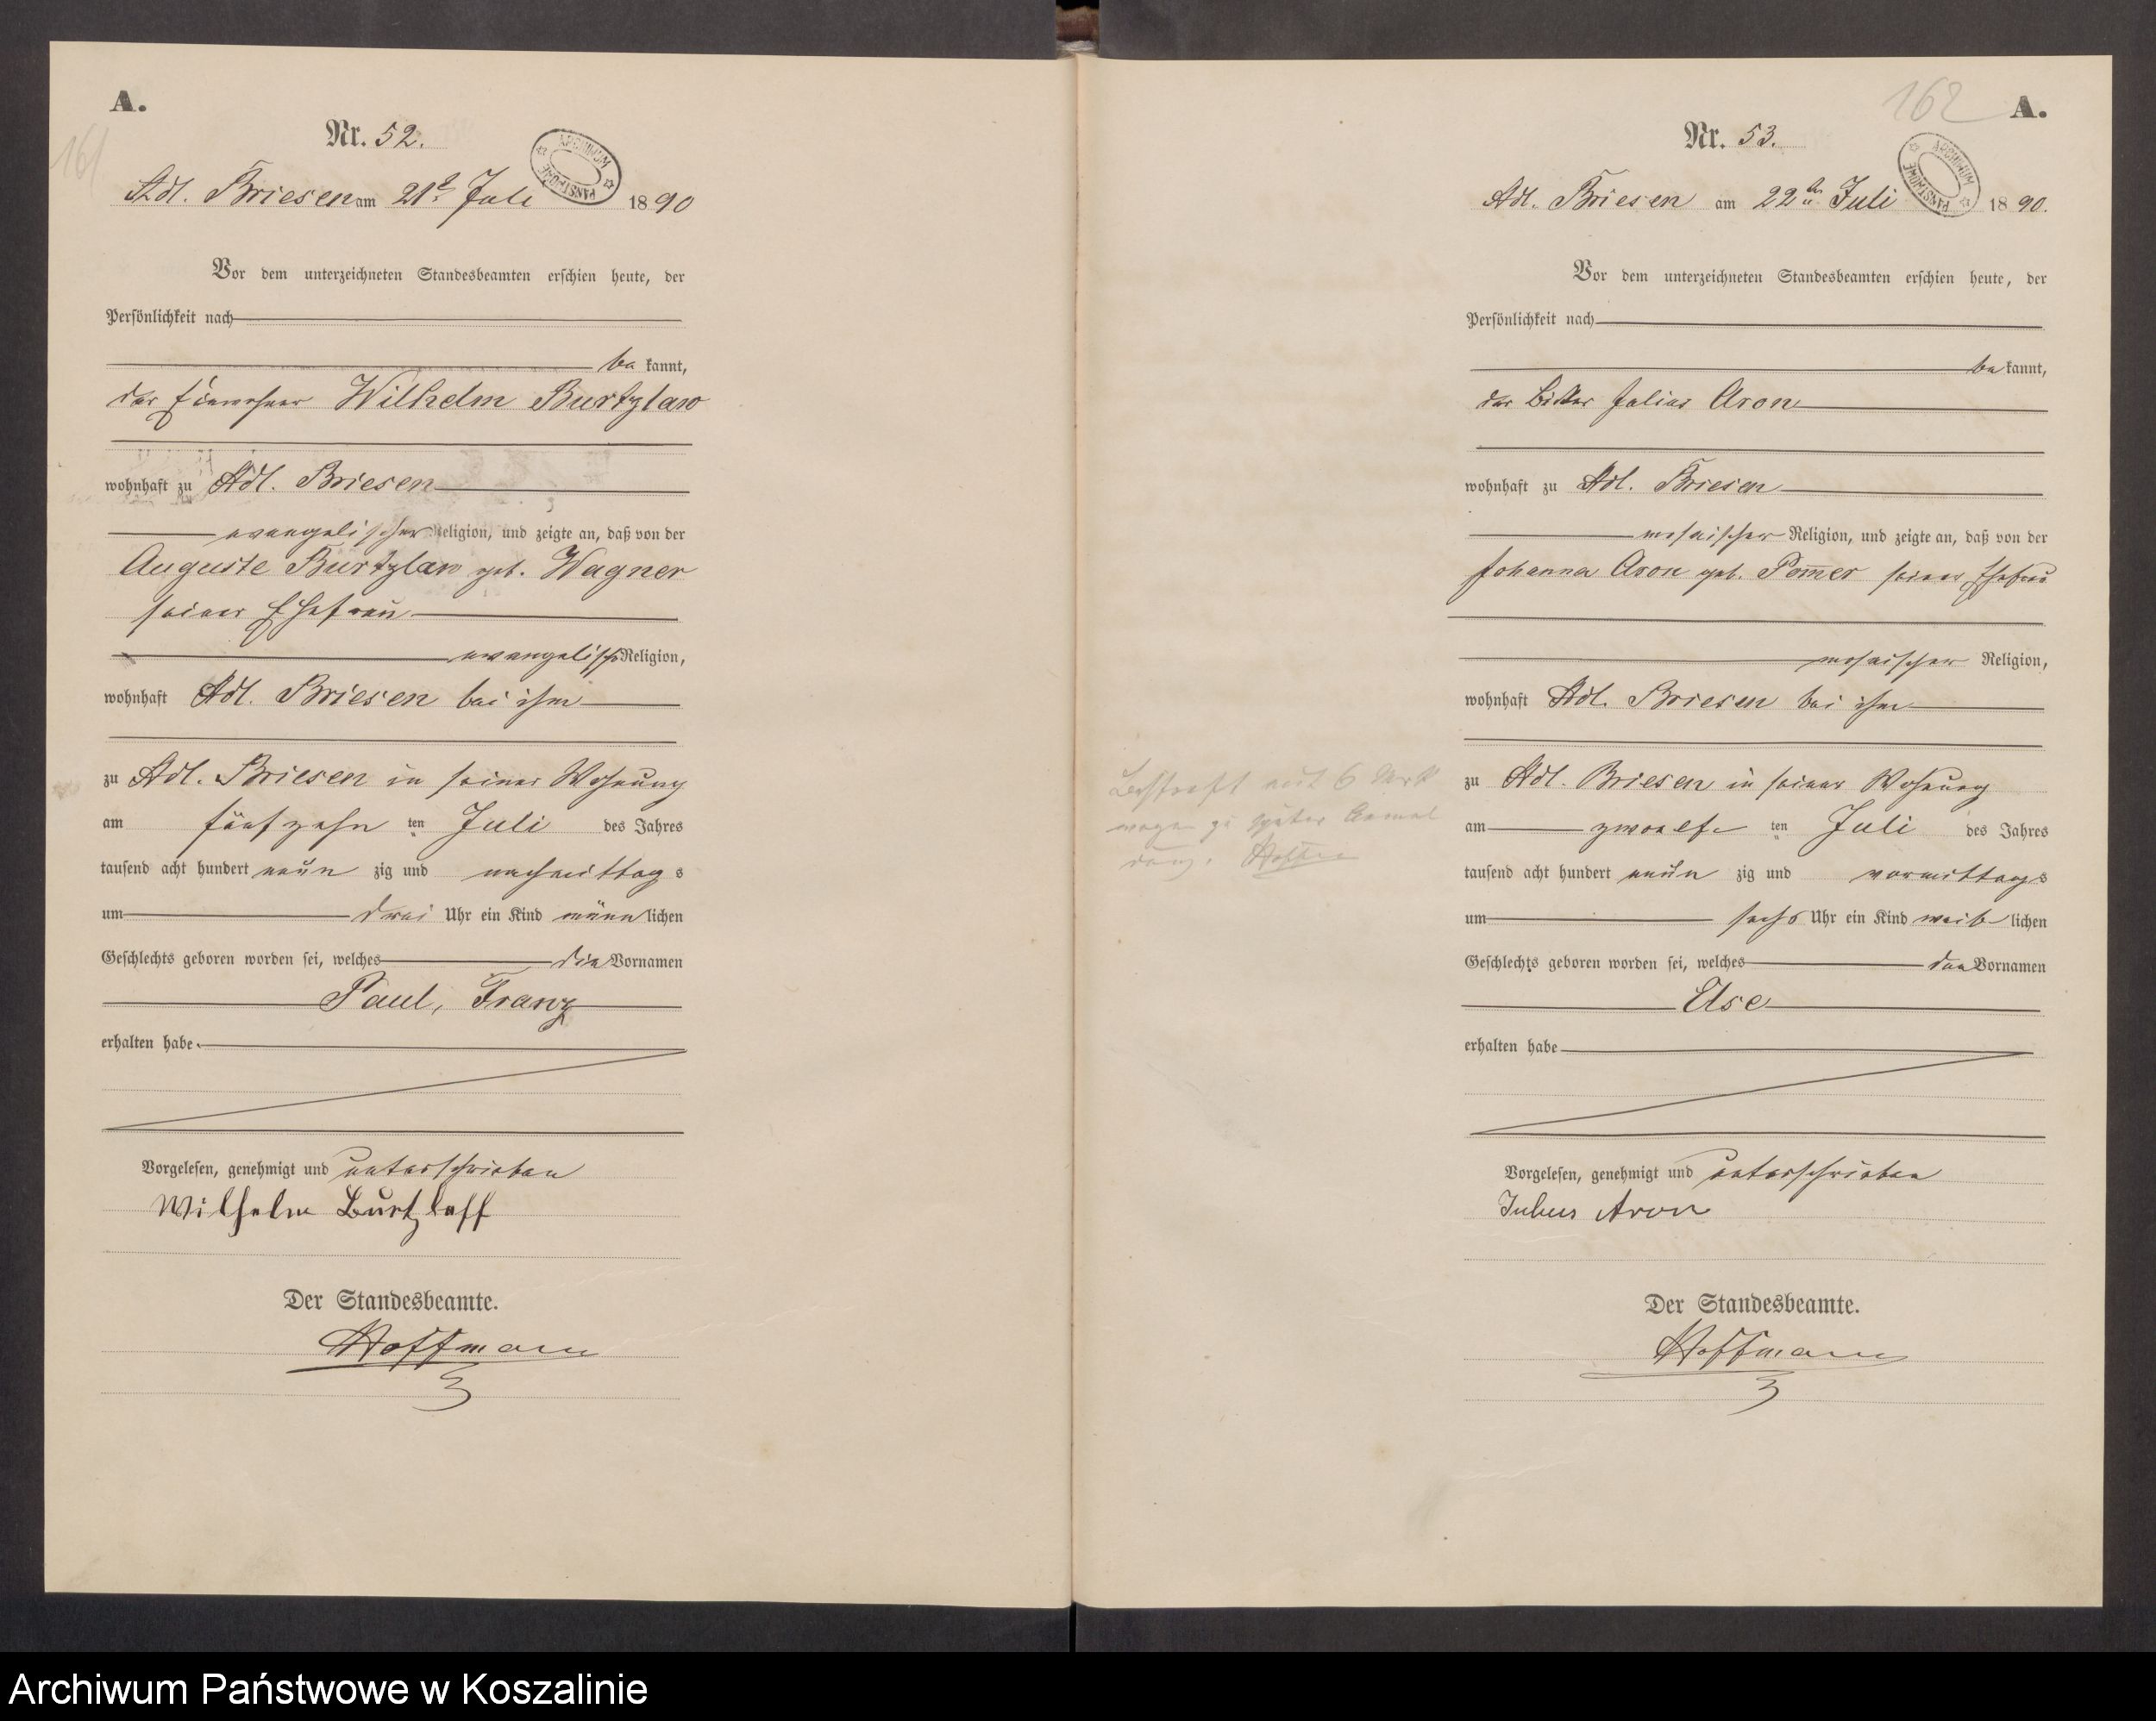 A.
161
Nr. 52.
ARCHIWUM PAŃSTWOWE
Adl. Briesen am 21t Juli 1890
Vor dem unterzeichneten Standesbeamten erschien heute, der
Persönlichkeit nach
be kannt,
der Einwohner Wilhelm Burtzlaw
wohnhaft zu Adl. Briesen
evangelischer Religion, und zeigte an, daß von der
Auguste Burtzlaw geb. Wagner
seiner Ehefrau
evangelisch Religion,
wohnhaft Adl. Briesen bei ihm
zu Adl. Briesen in seiner Wohnung
am fünfzehn ten Juli des Jahres
tausend acht hundert neun zig und nachmittag s
um drei Uhr ein Kind männ lichen
Geschlechts geboren worden sei, welches die Vornamen
Paul, Franz
erhalten habe.
Vorgelesen, genehmigt und unterschrieben
Wilhelm Burtzlaff
Der Standesbeamte.
Hoffmann
162
A.
Nr. 53.
ARCHIWUM PAŃSTWOWE
Adl. Briesen am 22ten Juli 1890.
Vor dem unterzeichneten Standesbeamten erschien heute, der
Persönlichkeit nach
be kannt,
der Julius Aron
wohnhaft zu Adl. Briesen
mosaischer Religion, und zeigte an, daß von der
Johanna Aron geb. Pom̄er seiner Ehefrau
mosaischer Religion,
wohnhaft Adl. Briesen bei ihm
zu Adl. Briesen in seiner Wohnung
am zwoelf ten Juli des Jahres
tausend acht hundert neun zig und vormittags
um sechs Uhr ein Kind weib lichen
Geschlechts geboren worden sei, welches den Vornamen
Else
erhalten habe
Vorgelesen, genehmigt und unterschrieben
Julius Aron
Der Standesbeamte.
Hoffmann
Bestraft mit 6 Mark
wegen zu später Anmel
dung.
Archiwum Państwowe w Koszalinie